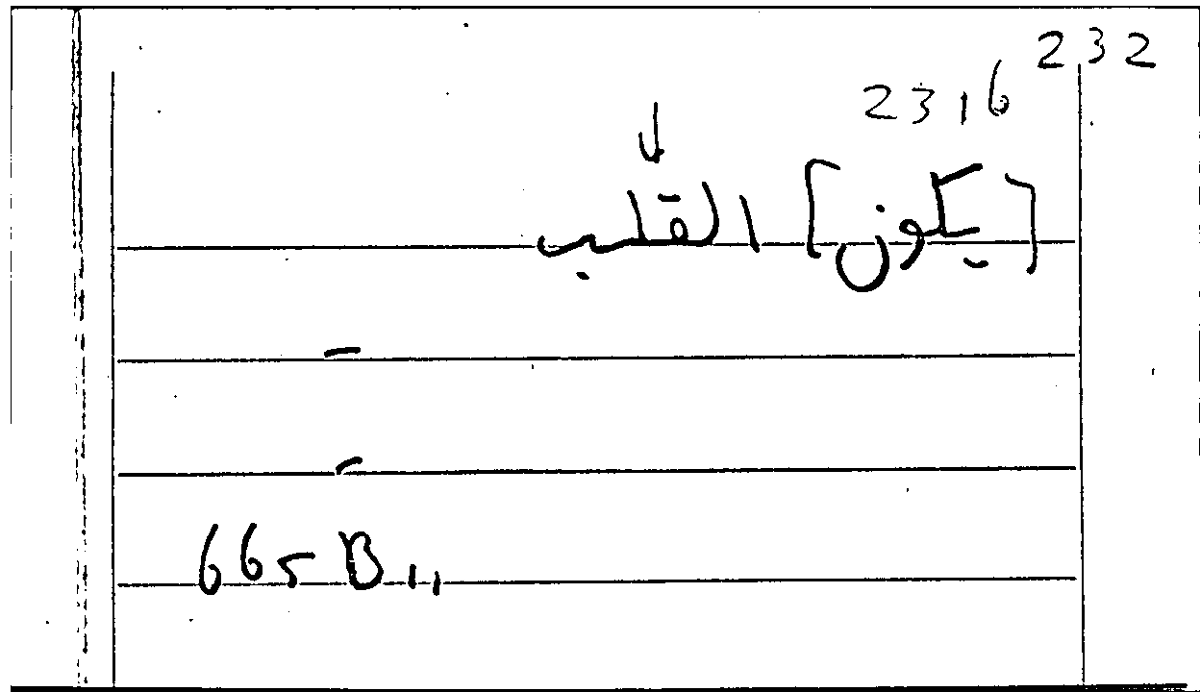 232
23,6
[يكون] القلب
–
–
665 B 11